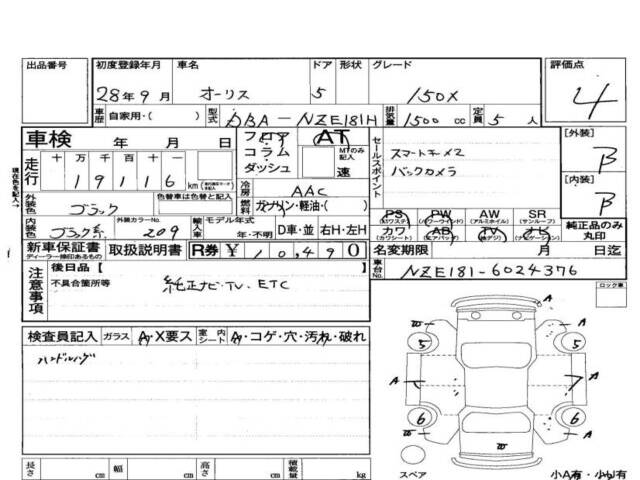 出品番号 初度登録年月 車名 ドア 形状 グレード 評価点
28年9月 オーリス 5 150X 4
車歴 自家用・( ) 型式 DBA-NZE181H 排気量 1500 cc 定員 5 人
車検 年 月 日 フロア コラム ダッシュ AT MTのみ記入 速
現在色を記入→
走行 十 万 千 百 十 一
19116 km
セールスポイント
スマートキー×2
バックカメラ
[外装] B
[内装] B
冷房 AAC
外装色 ブラック 色替車は色替と記入
燃料 ガソリン・軽油・( )
内装色 ブラック系 外装カラーNo. 209
輸入車 モデル年式 年・不明 D車・並 右H・左H
PS (パワステ) PW (パワーウインド) AW (アルミホイル) SR (サンルーフ)
カワ (カワシート) AB (エアバッグ) TV (地デジ) ナビ (ナビゲーション)
純正品のみ丸印
新車保証書 ディーラー捺印あるもの 取扱説明書 R券 ¥10,490
名変期限 月 日迄
車台No. NZE181-6024376
注意事項
後日品【
不具合箇所等
純正ナビ・TV、ETC
ロック車
検査員記入 ガラス A・X要ス 室内シート A・コゲ・穴・汚れ・破れ
A
5 5
A A
A
6 6
スペア
長さ cm 幅 cm 高さ cm 積載量 kg
小A有・小U有